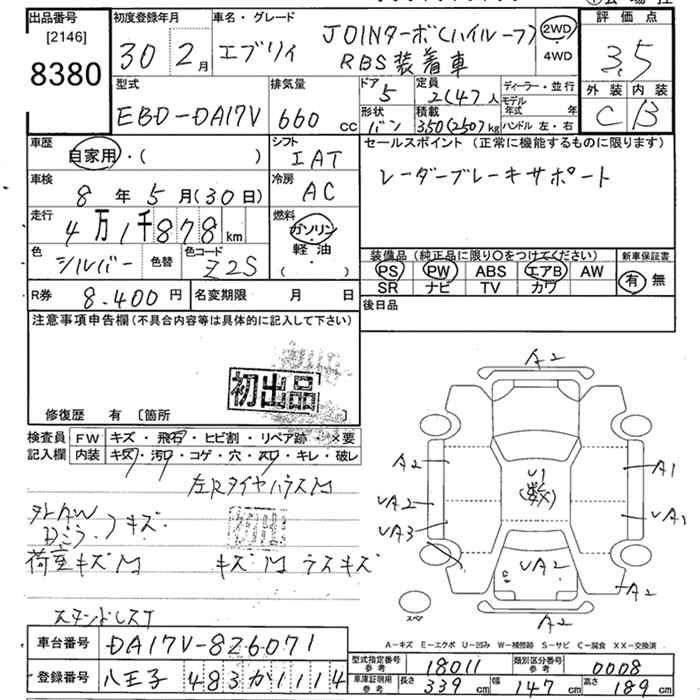 出品番号
[2146]
8380
初度登録年月
30年 2月
車名・グレード
エブリィ JOINターボ(ハイルーフ)
RBS装着車
2WD
4WD
評価点
3.5
外装 内装
C B
型式
EBD-DA17V
排気量
660 cc
ドア
5
形状
バン
定員
2(4)人
積載
350(250)kg
ディーラー・並行
モデル年式 年
ハンドル 左・右
車歴
自家用・( )
シフト
IAT
セールスポイント (正常に機能するものに限ります)
レーダーブレーキサポート
車検
8年 5月(30日)
冷房
AC
走行
4万1千878km
燃料
ガソリン・
軽油
( )
色
シルバー
色替
色コード
Z2S
装備品 (純正品に限り○をつけてください)
PS PW ABS エアB AW
SR ナビ TV カワ
新車保証書
有 無
R券 8.400円
名変期限 月 日
後日品
注意事項申告欄 (不具合内容等は具体的に記入して下さい)
初出品
修復歴 有 〔箇所 〕
検査員
記入欄
FW キズ・飛石・ヒビ割・リペア跡・×要
内装 キズ・汚れ・コゲ・穴・スレ・キレ・破レ
左Rタイヤハウス
キズ
荷室キズ
キズ
A2
A2
A1
U1
(数)
UA2
UA1
UA3
UA2
A2
A2
スペア
A-キズ E-エクボ U-凹み W-補修跡 S-サビ C-腐食 XX-交換済
車台番号 DA17V-826071
登録番号 八王子 483 か 1114
型式指定番号 参考 18011
類別区分番号 参考 0008
車庫証明用 参考 長さ 339cm 幅 147cm 高さ 189cm